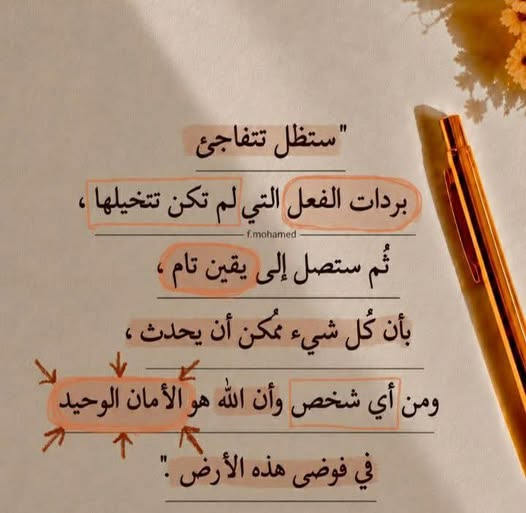 "ستظل تتفاجئ
بردات الفعل التي لم تكن تتخيلها ،
f.mohamed
ثُم ستصل إلى يقين تام ،
بأن كُل شيء مُمكن أن يحدث ،
ومن أي شخص وأن الله هو الأمان الوحيد
في فوضى هذه الأرض ."